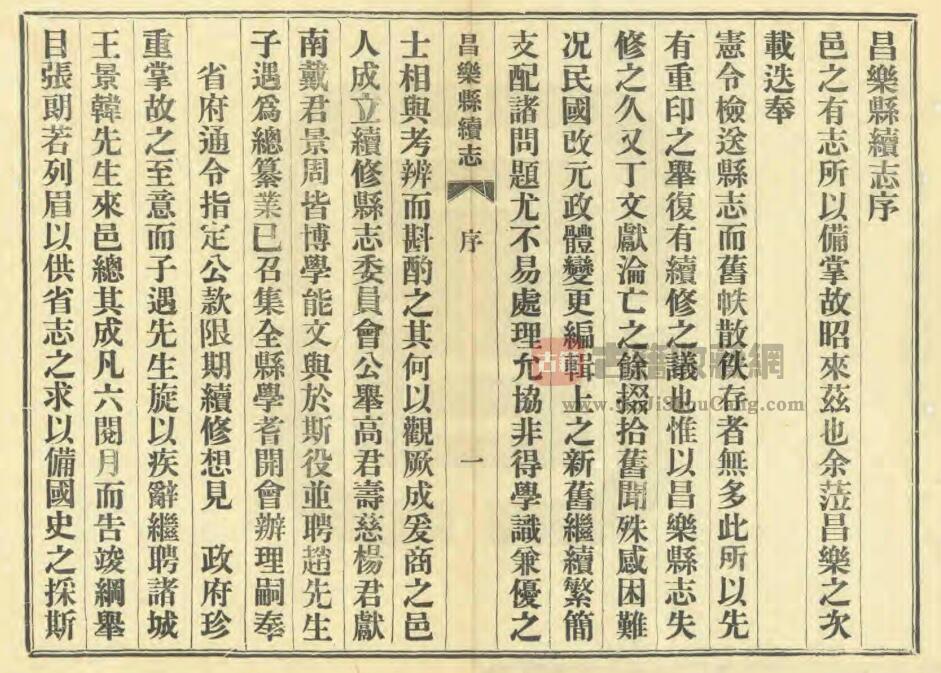 昌樂縣續志序
邑之有志所以備掌故昭來茲也余蒞昌樂之次
載迭奉
憲令檢送縣志而舊帙散佚存者無多此所以先
有重印之舉復有續修之議也惟以昌樂縣志失
修之久又丁文獻淪亡之餘掇拾舊聞殊感困難
况民國改元政體變更編輯上之新舊繼續繁簡
支配諸問題尤不易處理允協非得學識兼優之
昌樂縣續志 序 一
士相與考辨而斟酌之其何以觀厥成爰商之邑
人成立續修縣志委員會公舉高君壽慈楊君獻
南戴君景周皆博學能文與於斯役並聘趙先生
子遇爲總纂業已召集全縣學耆開會辦理嗣奉
省府通令指定公款限期續修想見 政府珍
重掌故之至意而子遇先生旋以疾辭繼聘諸城
王景韓先生來邑總其成凡六閱月而告竣綱舉
目張朗若列眉以供省志之求以備國史之採斯
古籍收藏網
www.GuJiShouCang.com